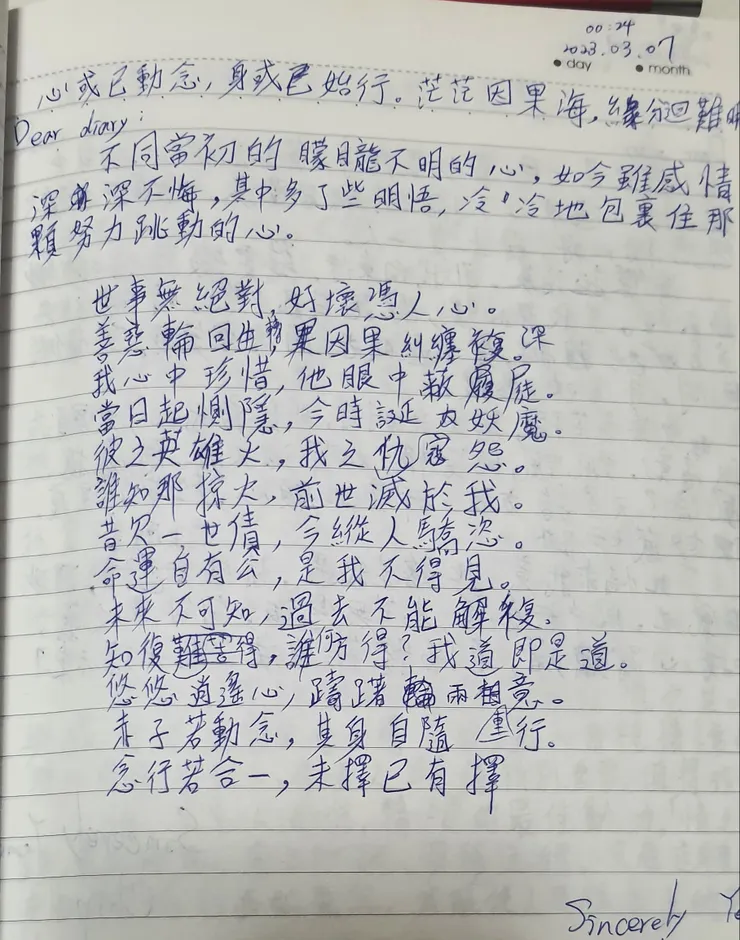 00:24
2023.03.07
day month
心或已動念,身或已始行。茫茫因果海,緣分迴難
Dear diary:
不同當初的朦朧不明的心,如今雖感情
深深不悔,其中多了些明悟,冷冷地包裹住那
顆努力跳動的心。
世事無絕對,好壞憑人心。
善惡輪回生,因果糾纏深。
我心中珍惜,他眼中敝屣。
當日起惻隱,今時誕妖魔。
彼之英雄火,我之仇怨。
誰知那掠火,前世滅於我。
昔欠一世債,今縱人驕恣。
命運自有公,是我不得見。
未來不可知,過去不能解複。
知復難得,誰何方得?我道即是道。
悠悠逍遙心,躊躇兩相意。
赤子若動念,其身自隨行。
念行若合一,未擇已有擇
Sincerely